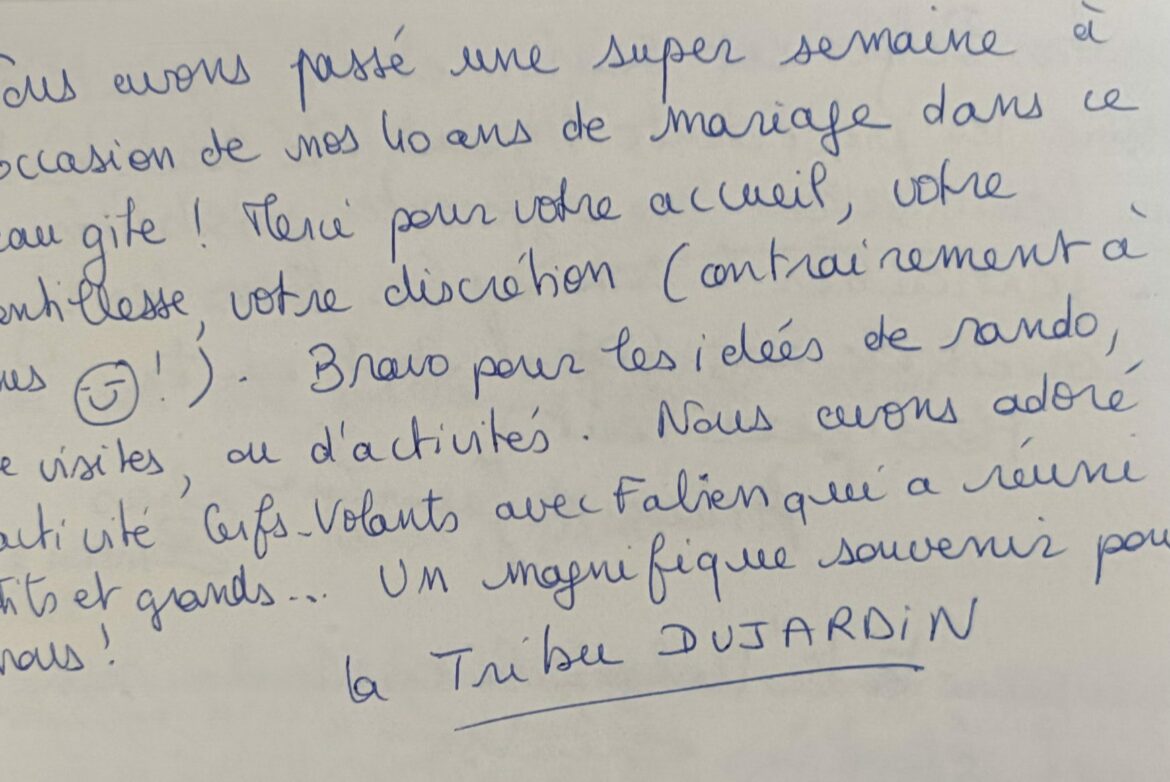 ous avons passé une super semaine à
occasion de nos 40 ans de mariage dans ce
eau gite ! Merci pour votre accueil, votre
entillesse, votre discrétion (contrairement à
us ☺ ! ). Bravo pour les ideés de rando,
e visites, ou d'activités. Nous avons adoré
activité Cerfs-Volants avec Fabien qui a réuni
tits et grands... Un magnifique souvenir pou
nous !
la Tribu DUJARDIN